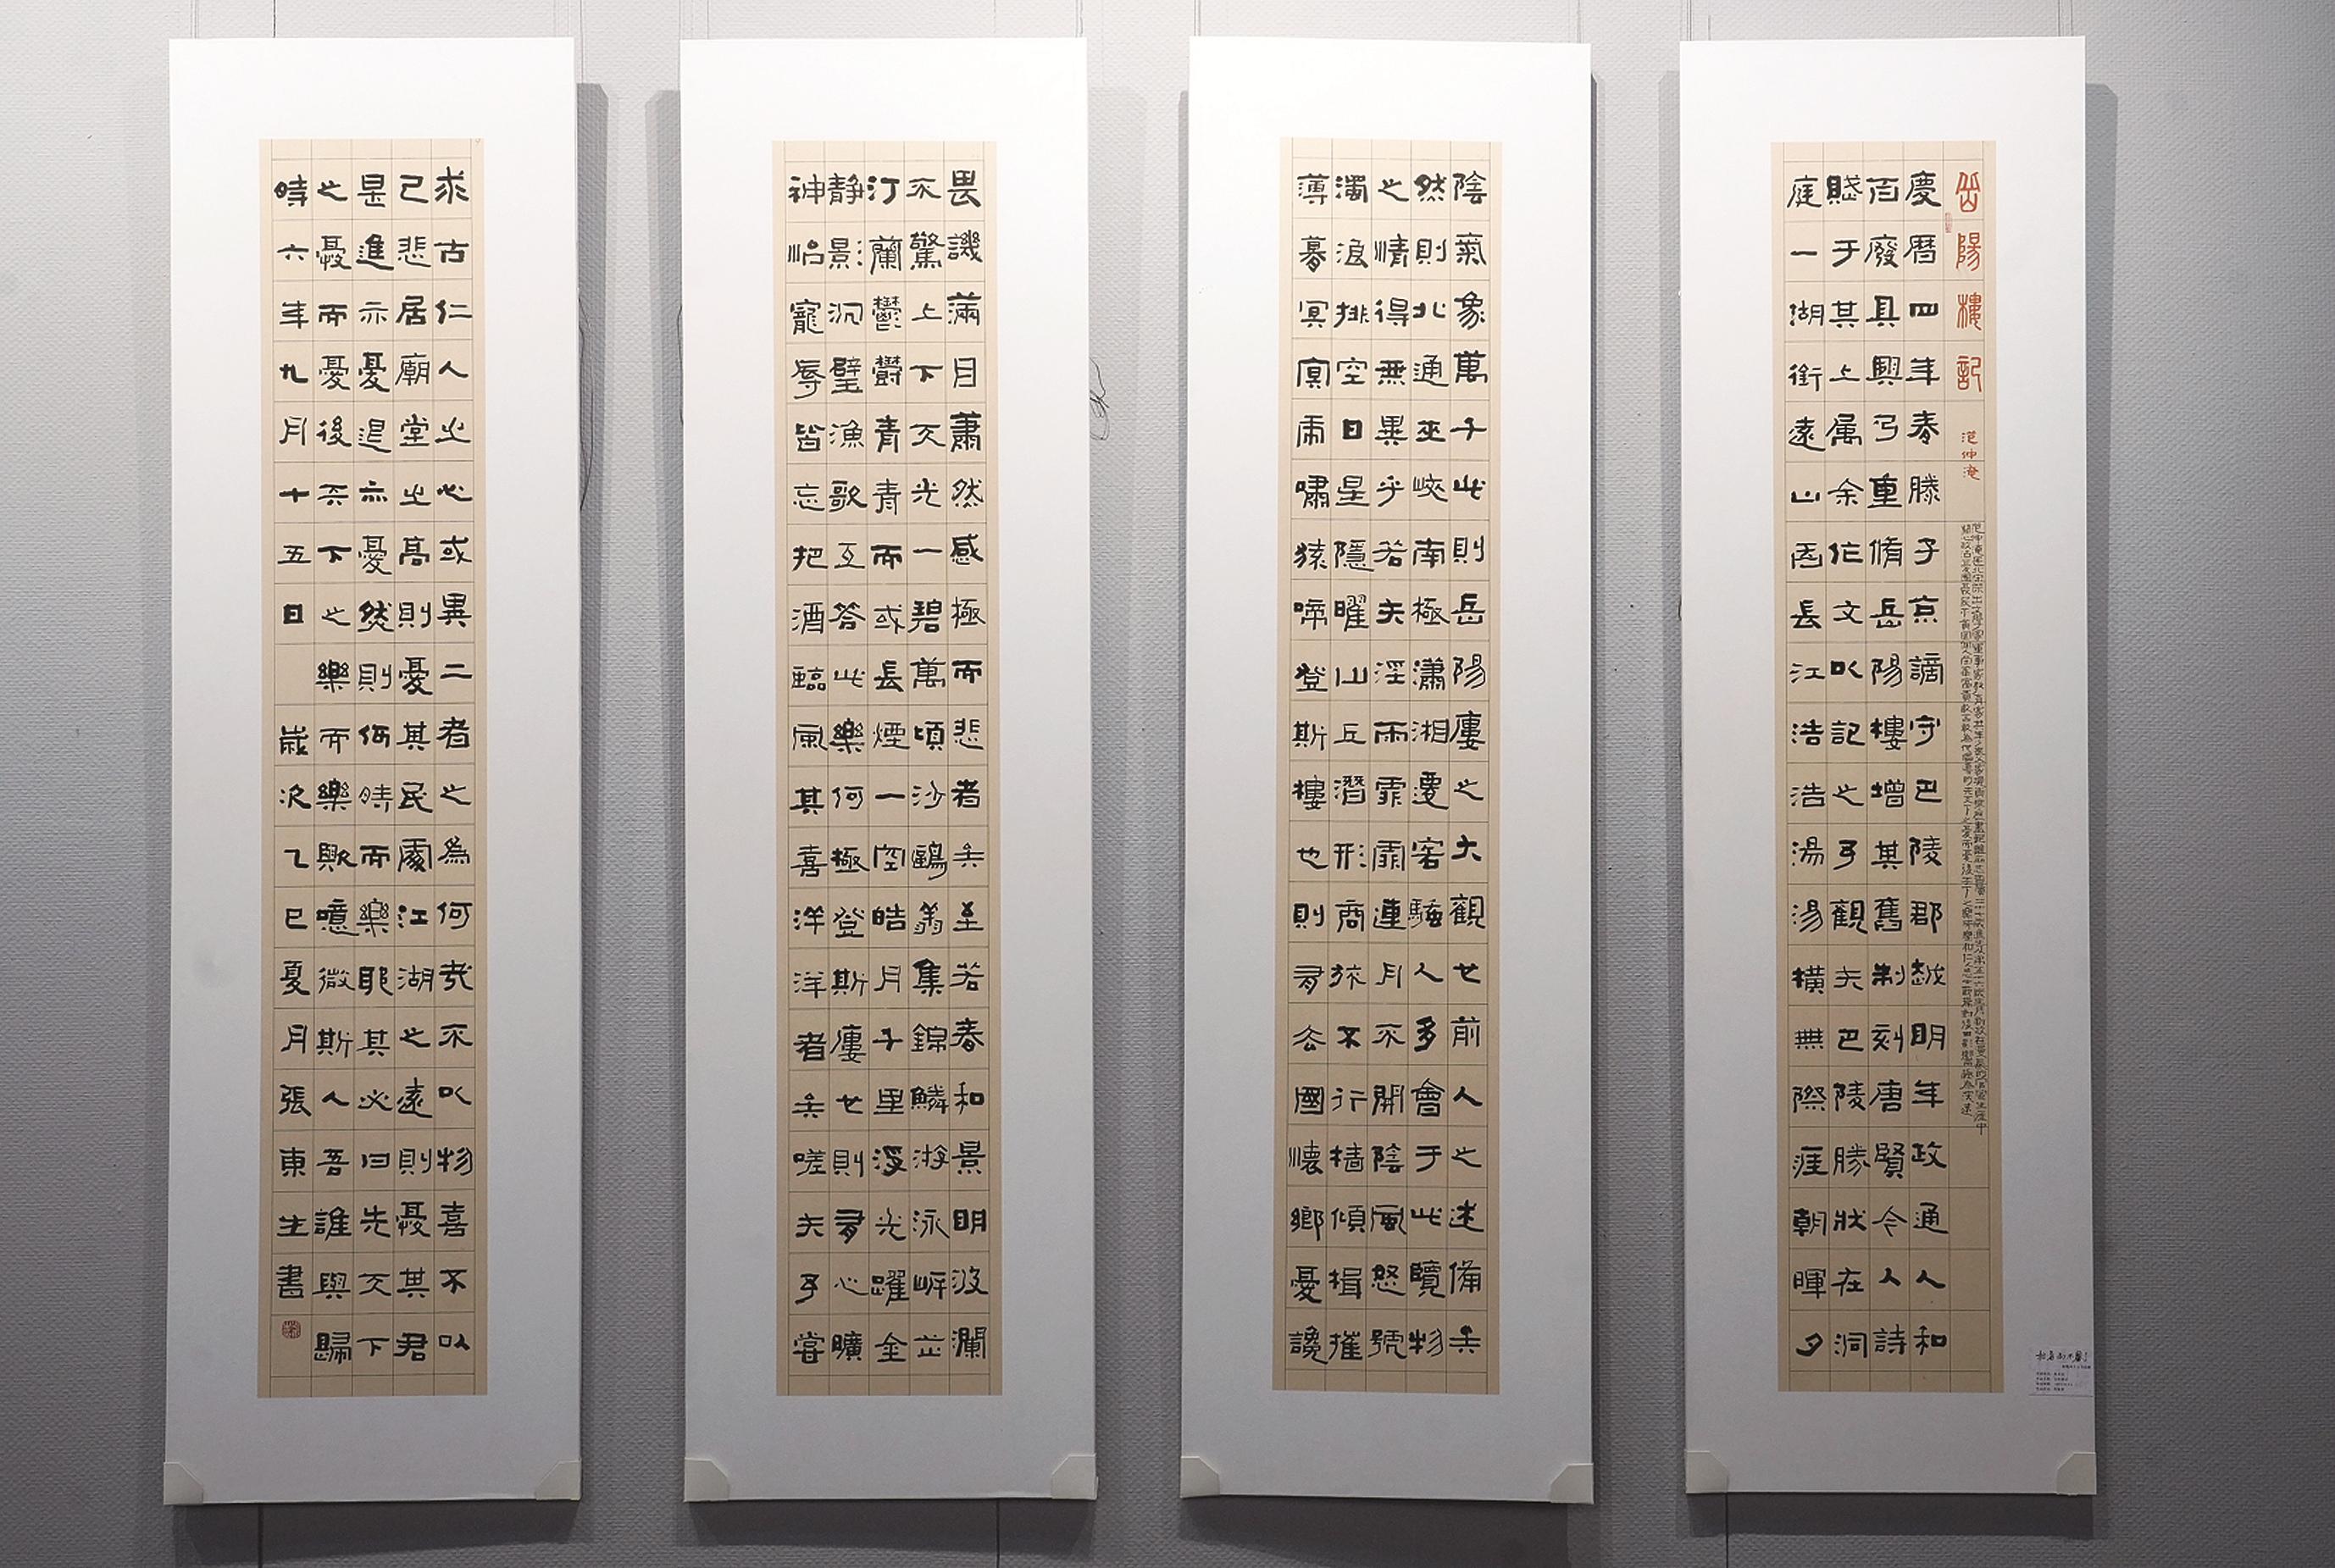 岳陽樓記 范仲淹
慶曆四年春滕子京謫守巴陵郡越明年政通人和
百廢具興乃重脩岳陽樓增其舊制刻唐賢今人詩
賦于其上属余作文以記之予觀夫巴陵勝狀在洞
庭一湖銜遠山吞長江浩浩湯湯橫無際涯朝暉夕
陰氣象萬千此則岳陽樓之大觀也前人之述備矣
然則北通巫峽南極瀟湘遷客騷人多會于此覽物
之情得無異乎若夫淫雨霏霏連月不開陰風怒號
濁浪排空日星隱曜山丘潛形商旅不行檣傾楫摧
薄暮冥冥虎嘯猿啼登斯樓也則有去國懷鄉憂讒
畏譏滿目蕭然感極而悲者矣至若春和景明波瀾
不驚上下天光一碧萬頃沙鷗翔集錦鱗游泳岸芷
汀蘭鬱鬱青青而或長煙一空皓月千里浮光躍金
靜影沉璧漁歌互答此樂何極登斯樓也則有心曠
神怡寵辱皆忘把酒臨風其喜洋洋者矣嗟夫予嘗
求古仁人之心或異二者之為何哉不以物喜不以
己悲居廟堂之高則憂其民處江湖之遠則憂其君
是進亦憂退亦憂然則何時而樂耶其必曰先天下
之憂而憂後天下之樂而樂歟噫微斯人吾誰與歸
時六年九月十五日 歲次乙巳夏月張東生書